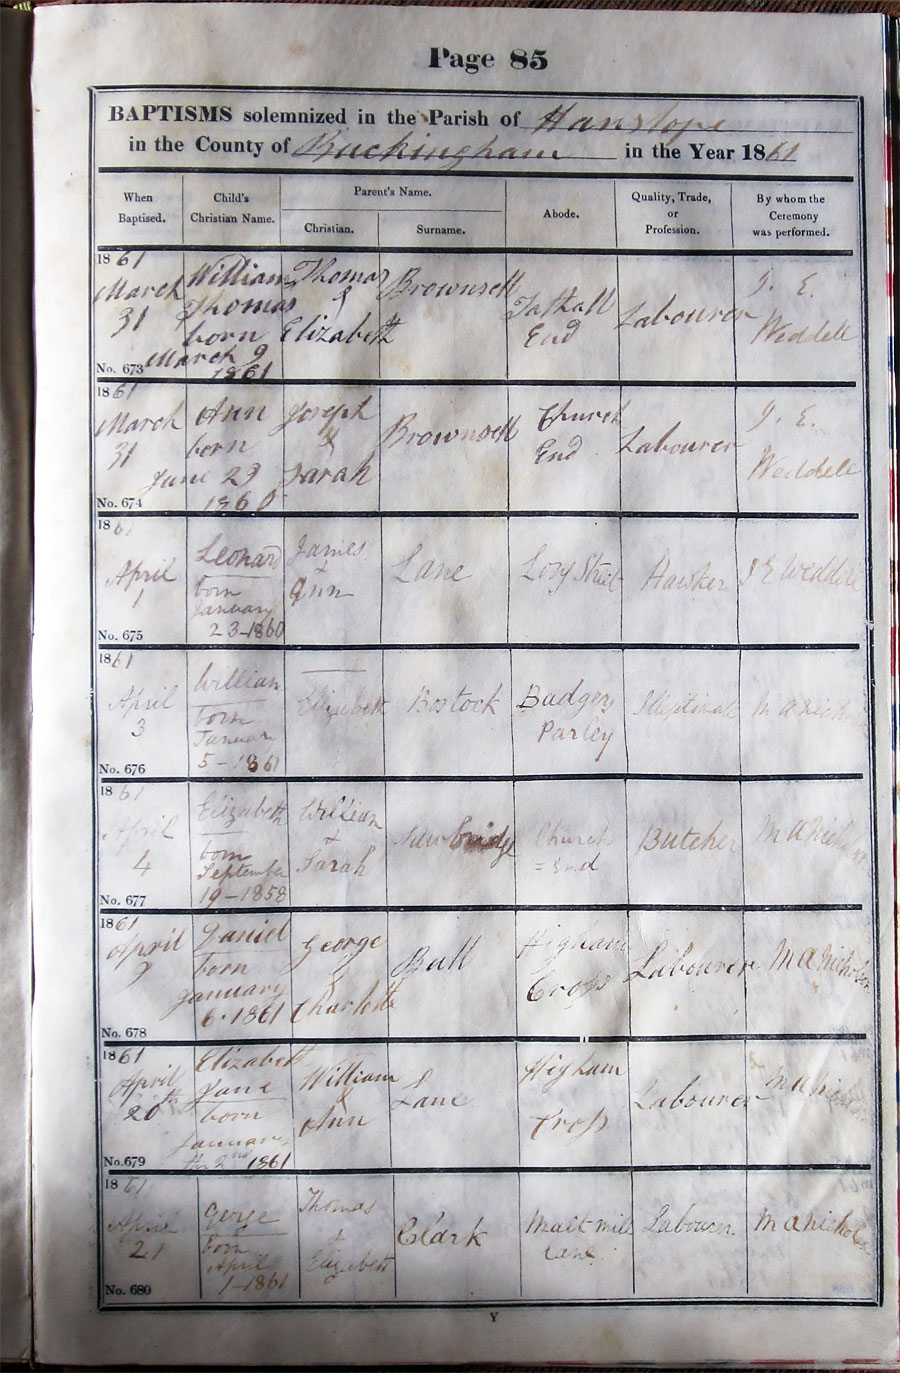 Page 85
BAPTISMS solemnized in the Parish of Hanslope
in the County of Buckingham in the Year 1861
When Baptised.
Child's Christian Name.
Parent's Name.
Christian.
Surname.
Abode.
Quality, Trade, or Profession.
By whom the Ceremony was performed.
1861
March
31
No. 673
William
Thomas
born
March 9
1861
Thomas
&
Elizabeth
Brownsell
Tathall
End
Labourer
J. E.
Weddell
1861
March
31
No. 674
Ann
born
June 29
1860
Joseph
&
Sarah
Brownsell
Church
End
Labourer
J. E.
Weddell
1861
April
1
No. 675
Leonard
born
January
23-1860
James
+
Ann
Lane
Long Street
Hawker
J E Weddell
1861
April
3
No. 676
William
born
January
5-1861
Elizabeth
Bostock
Badgers
Parley
M A Nich
1861
April
4
No. 677
Elizabeth
born
September
19-1858
William
+
Sarah
Sawbridge
Church
=End
Butcher
M A Nicholson
1861
April
9
No. 678
Daniel
born
January
6. 1861
George
&
Charlotte
Bull
Higham
Cross
Labourer
M A Nicholson
1861
April
20th
No. 679
Elizabeth
Jane
born
January
the 2nd 1861
William
&
Ann
Lane
Higham
Cross
Labourer
M A Nicholson
1861
April
21
No. 680
George
born
April
1-1861
Thomas
+
Elizabeth
Clark
Malt mill
Lane
Labourer
M A Nicholson
Y